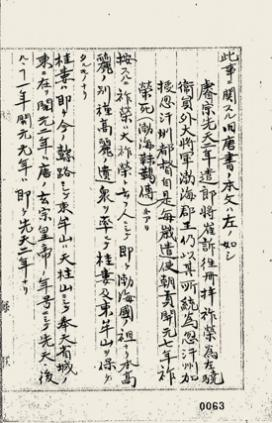 此事ニ関スル旧唐書ノ本文ハ左ノ如シ
睿宗先天二年遣郎将崔訢往冊拝祚榮為左驍
衛員外大将軍渤海郡王仍以其所統為忽汗州加
授忽汗州都督自是毎歳遣使朝貢開元七年祚
榮死(渤海靺鞨傳)
按スルニ祚榮ハ大祚榮ト云フ人ニシテ即チ渤海國ノ祖ナリ本高
麗ノ別種高麗ノ遺衆ヲ率ヰテ桂婁及東牟山ヲ保ツ
タルモノナリ
桂婁ハ即チ今ノ 東牟山ハ天柱山ニシテ奉天省城ノ
東ニ在リ開元二年ハ唐ノ玄宗皇帝ノ年号ニシテ先天後
開元元年ハ即チ先天二年ナリ
0063